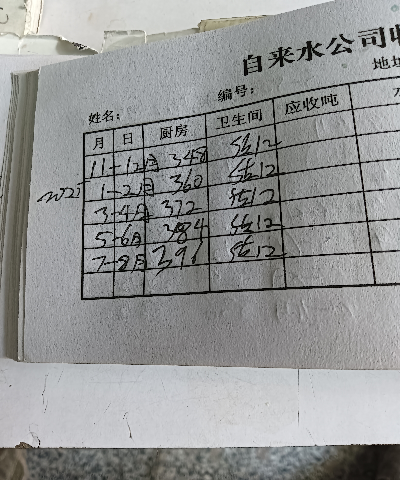 自来水公司收
姓名: 编号: 地址
月 日 厨房 卫生间 应收吨
11-12月 348 12
2025 1-2月 360 12
3-4月 372 12
5-6月 384 12
7-8月 391 12